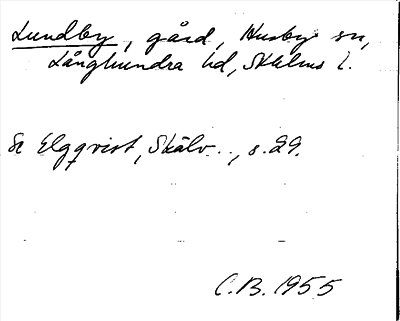 Lundby, gård, Husby sn,
Långhundra hd, Sthlms l.
Se Elgqvist, Skälv.., s. 29.
C.B. 1955